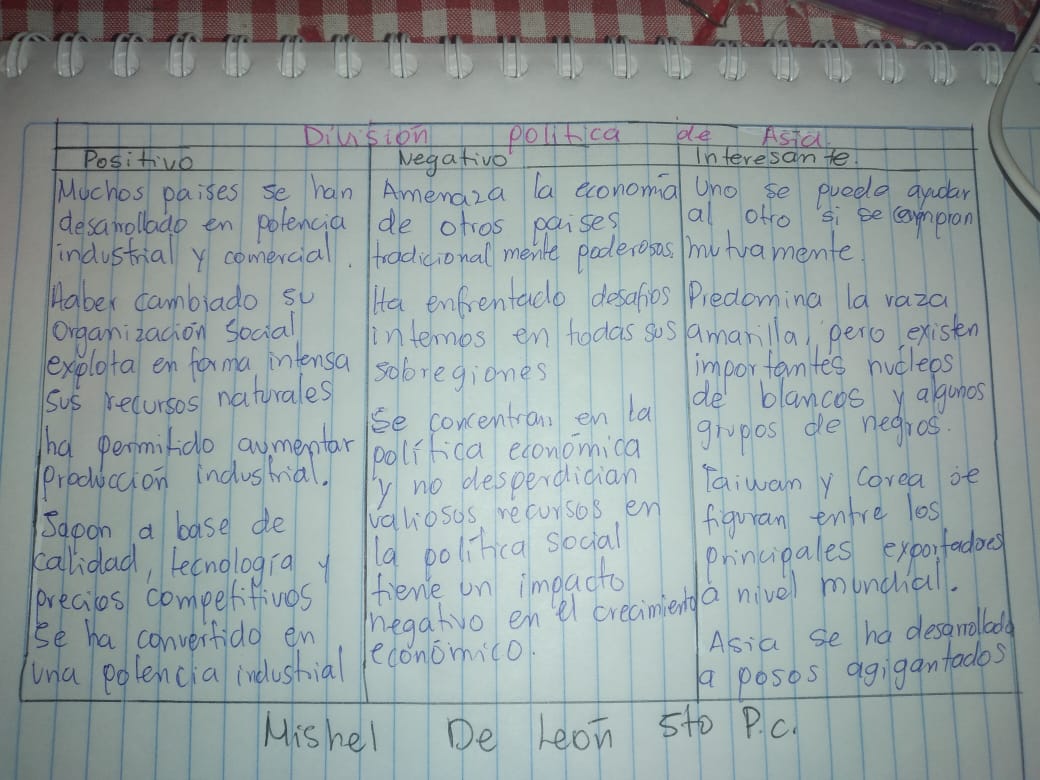 División política de Asia
Positivo
Muchos paises se han
desarrollado en potencia
industrial y comercial.
Haber cambiado su
Organización Social
explota en forma intensa
sus recursos naturales
ha permitido aumentar
Producción industrial.
Japon a base de
calidad, tecnología y
precios competitivos
Se ha convertido en
una potencia industrial
Negativo
Amenaza la economía
de otros paises
tradicional mente poderosos.
Ha enfrentado desafios
internos en todas sus
sobregiones
Se concentran en la
política económica
y no desperdician
valiosos recursos en
la política social
tiene un impacto
negativo en el crecimiento
económico.
Interesante.
Uno se puede ayudar
al otro si se compran
mutuamente.
Predomina la raza
amarilla, pero existen
importantes nucleos
de blancos y algunos
grupos de negros.
Taiwan y Corea se
figuran entre los
principales exportadores
a nivel mundial.
Asia se ha desarrollado
a posos agigantados
Mishel De León 5to P.c.